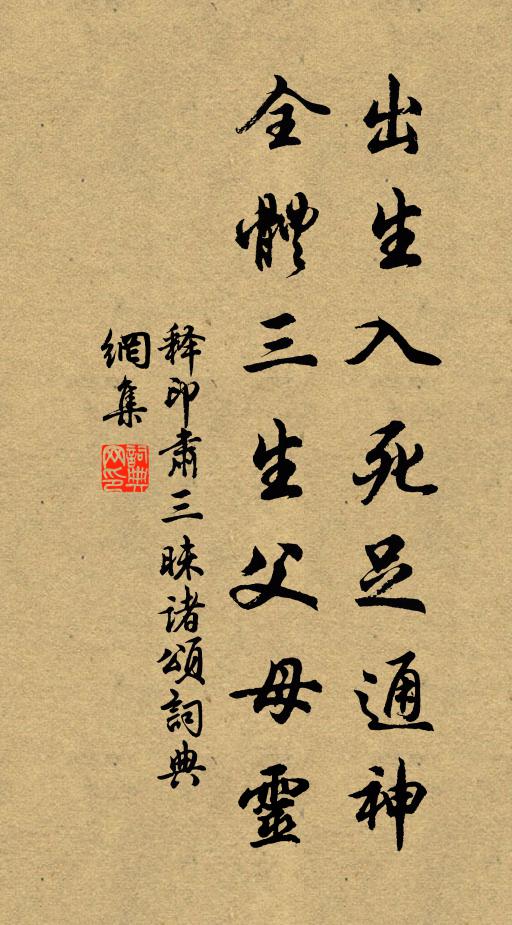 出生入死足通神
全體三生父母靈
释印肅三昧诸頌詞典
網集
詞典网印